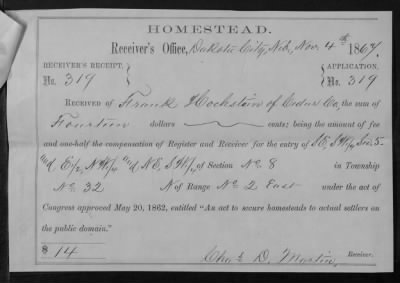 HOMESTEAD.
Receiver's Office, Dakota City, Neb, Nov. 4th 1867.
RECEIVER'S RECEIPT, No. 319
APPLICATION, No. 319
RECEIVED OF Frank Hochstein of Cedar Co, the sum of
Fourteen dollars cents; being the amount of fee
and one-half the compensation of Register and Receiver for the entry of SE, SW/4 Sec. 5-
and E/2, NW/4 and NE, SW/4 of Section No 8 in Township
No 32 N of Range No 2 East under the act of
Congress approved May 20, 1862, entitled "An act to secure homesteads to actual settlers on
the public domain."
$ 14
Chas D. Martin, Receiver.